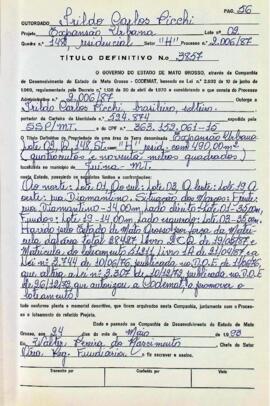 PÁG. 56
OUTORGADO: Frildo Carlos Picchi
Projeto Expansão Urbana Lote 02
Quadra "148" residencial Setor "H" Processo 2.006/87
TÍTULO DEFINITIVO Nº 3857
O GOVERNO DO ESTADO DE MATO GROSSO, através da Companhia
de Desenvolvimento do Estado de Mato Grosso - CODEMAT, baseado na Lei nº 2.092 de 10 de junho de
1969, regulamentada pelo Decreto nº 1.138 de 30 de abril de 1970 e considerando o que consta do Processo
Administrativo nº 2.006/87
Frildo Carlos Picchi, brasileiro, solteiro
portador da Carteira de Identidade nº 534.874
SSP/MT. e CPF nº 363.152.061-15
O Título Definitivo de Propriedade de uma área de Terra denominada Expansão Urbana
Lote 02, Q. 148, St. "H" resid. com 490,00m²
(quatrocentos e noventa metros quadrados)
localizado no município de Juína - MT.
neste Estado, possuindo os seguintes limites e confrontantes:
Ao norte: Lote 01, Ao sul: Lote 03, A leste: Lote 19, A
oeste: rua Diamantino. Situação dos Marcos: Frente
rua Diamantino - 14,00m, Lado direito: Lote 01 - 35,00m,
Fundos: Lote 19 - 14,00m, Lado esquerdo: Lote 03 - 35,00m.
Havido pelo Estado de Mato Grosso por força da Matrí-
cula
Matrícula do loteamento
a Lei nº 2.744 de publicado no D.O.E
que altera a Lei nº 2.307 de 10/12/73 publicado no D.O.E
de 26/12/73 que autorizou a Codemat, a promover o
loteamento!
tudo conforme planta e memorial descritivo, que ficam arquivados nesta Companhia, juntamente com o Proces-
so e loteamento do referido Projeto.
Dado e passado na Companhia de Desenvolvimento do Estado de Mato
Grosso, em 24 dias do mês de Maio de 1.988
Eu Walter Pereira do Nascimento Chefe do Setor
Reg. Fundiária o fiz escrever e assino.
Transcrito por
Conferido por
Visto